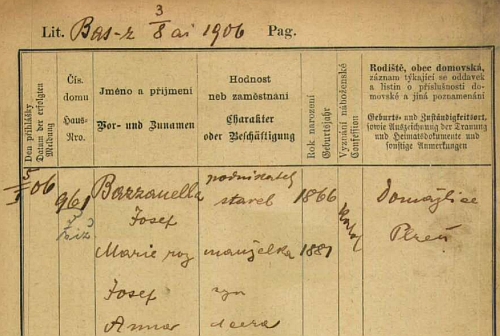 Lit. Bas-z 3/8 ai 1906 Pag.
Den přihlášky
Datum der erfolgten Meldung
Čís. domu
Haus-Nro.
Jméno a příjmení
Vor- und Zunamen
Hodnost neb zaměstnání
Charakter oder Beschäftigung
Rok narození
Geburtsjahr
Vyznání náboženské
Confession
Rodiště, obec domovská,
záznam týkající se oddavek
a listin o příslušnosti domovské a jiná poznamenání
Geburts- und Zuständigkeitsort,
sowie Aufzeichnung der Trauung
und Heimatsdokumente und
sonstige Anmerkungen
06 961 Bazzanella podnikatel staveb 1866 Domažlice
Josef Plzeň
Marie roz manželka 1881
Josef syn
Anna dcera